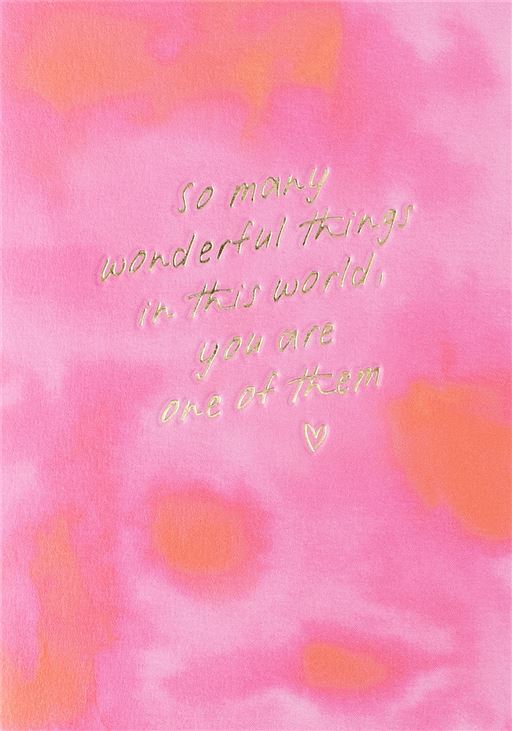 so many
wonderful things
in this world,
you are
one of them